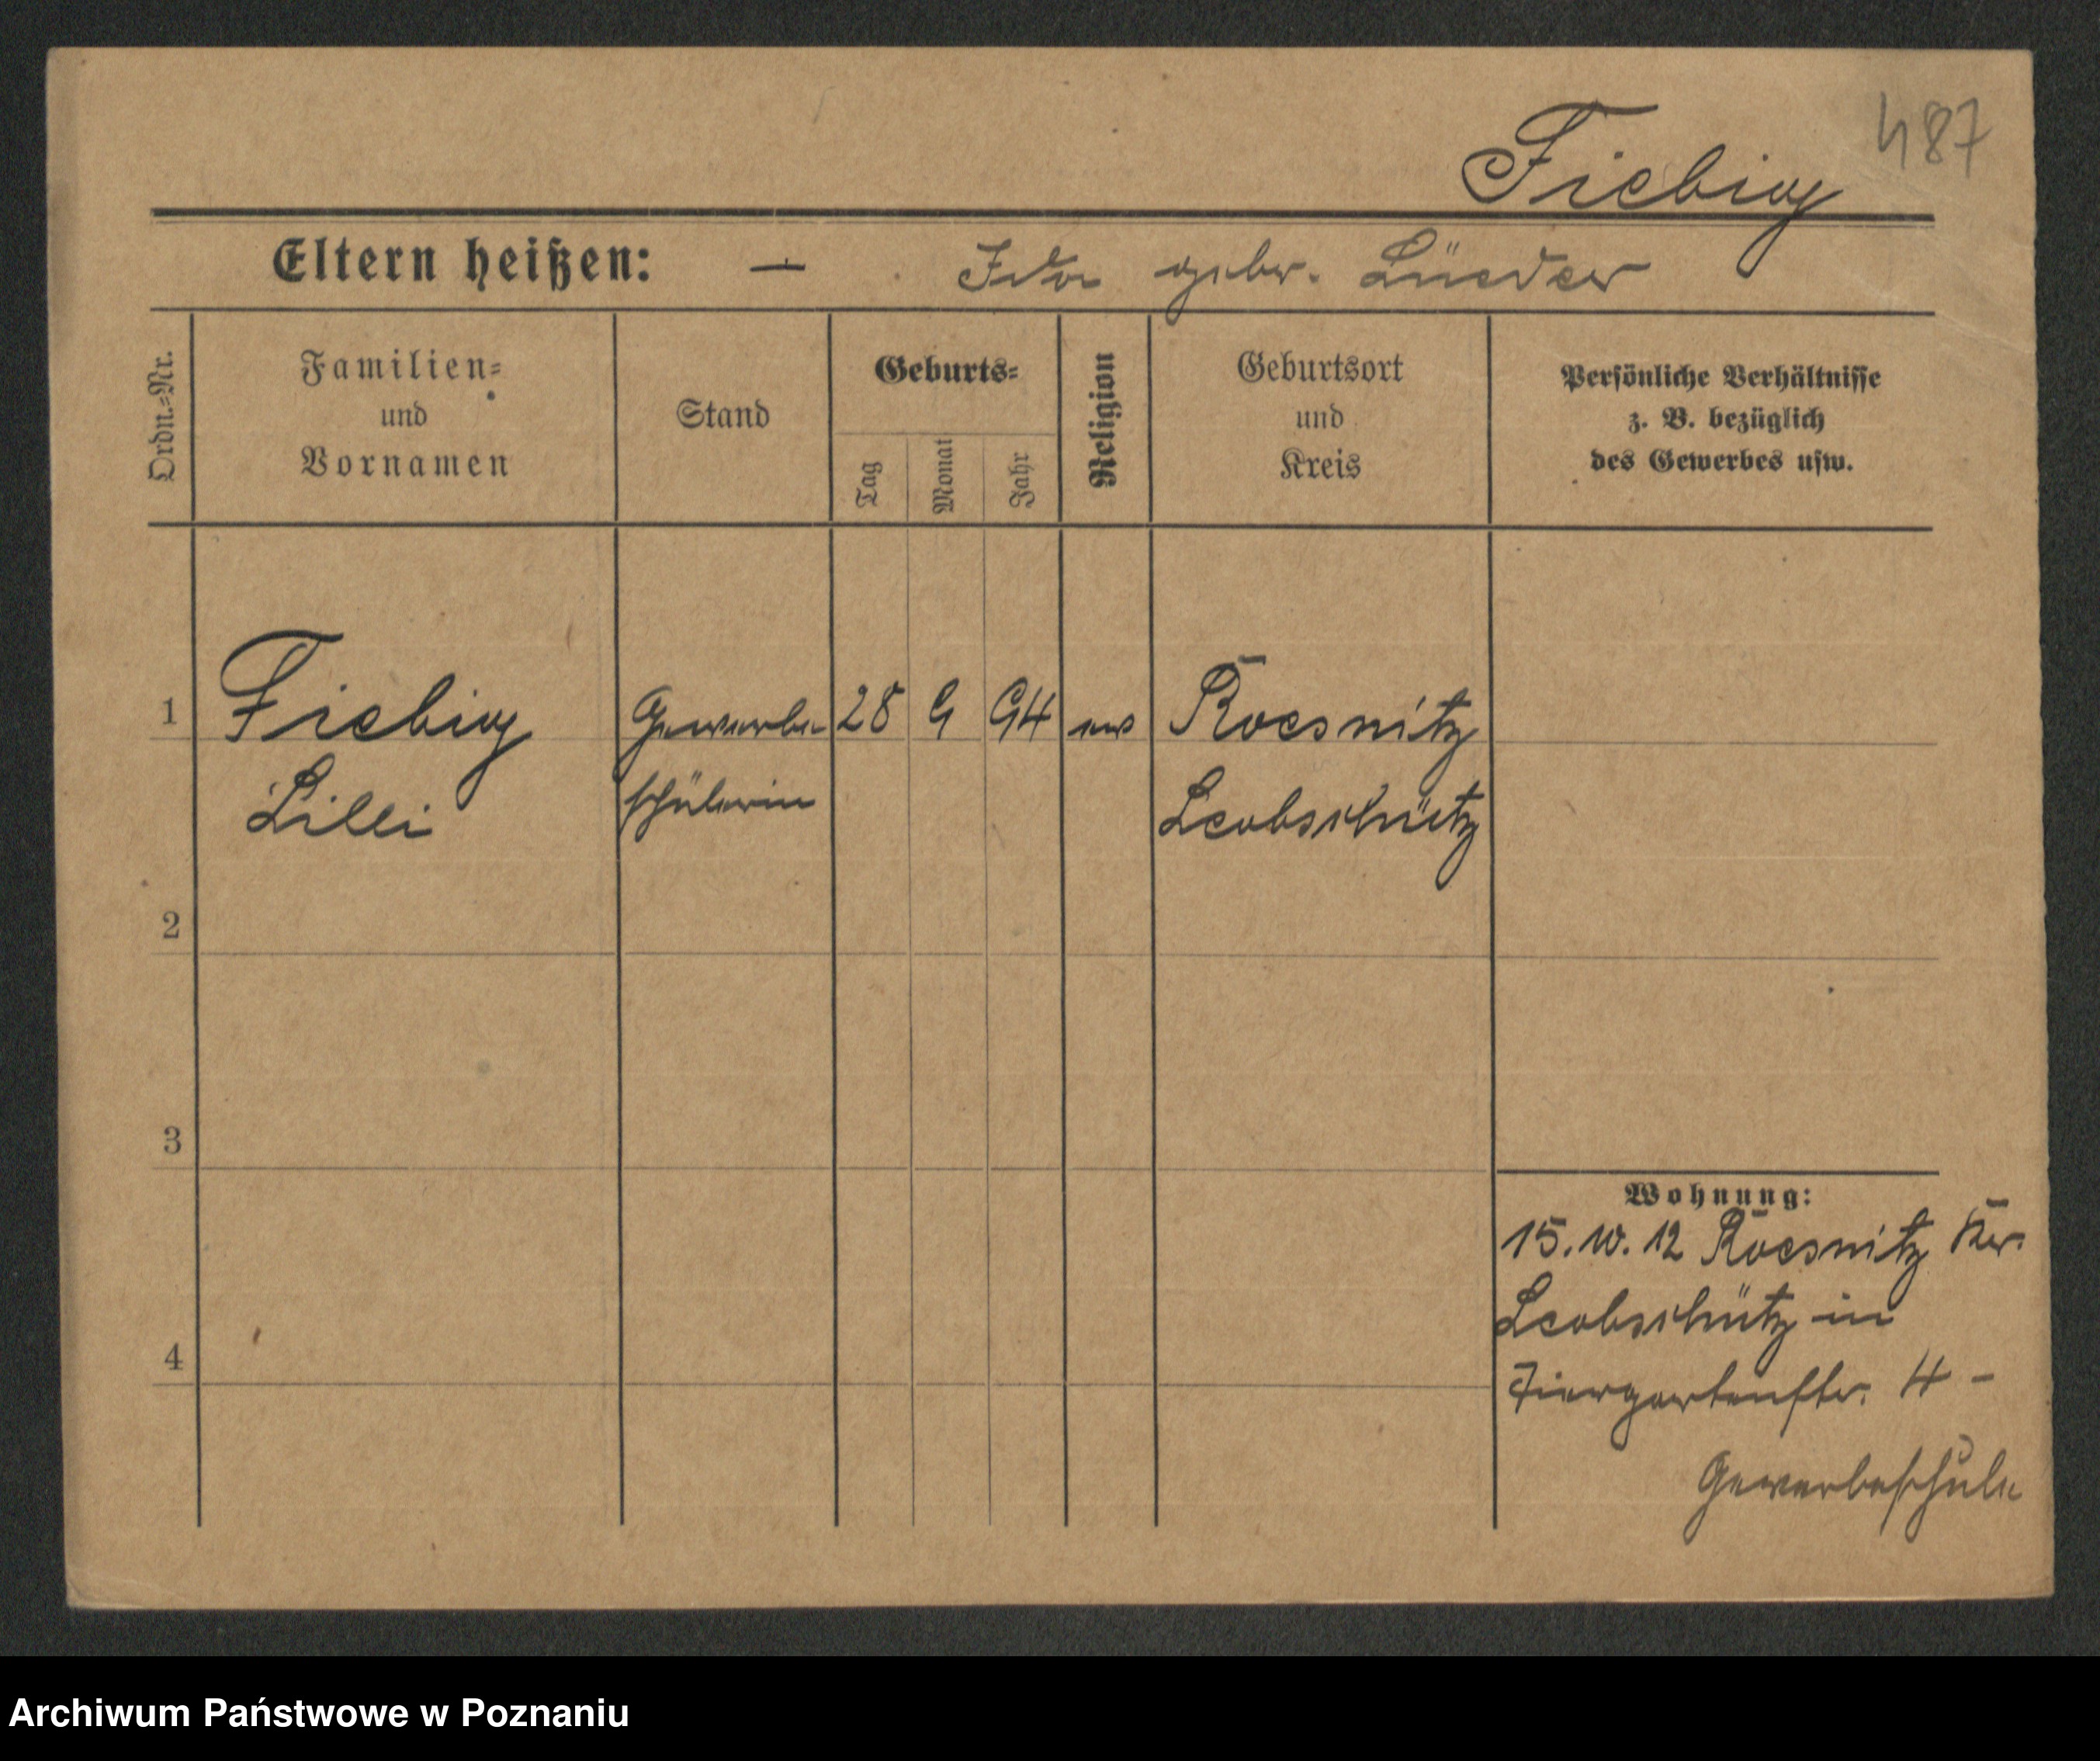 487
Fiebig
Eltern heißen: — Ida gebr. Lüeder
Ordn.=Nr.
Familien=
und
Vornamen
Stand
Geburts=
Tag
Monat
Jahr
Religion
Geburtsort
und
Kreis
Persönliche Verhältnisse
z. B. bezüglich
des Gewerbes usw.
1 Fiebig Gewerbe 28 9 94 ev Roesnitz
Lilli schülerin Leobschütz
2
3
Wohnung:
15. 10. 12 Roesnitz Kr.
Leobschütz in
4
Tiergartenstr. 4 -
Gewerbeschule
Archiwum Państwowe w Poznaniu